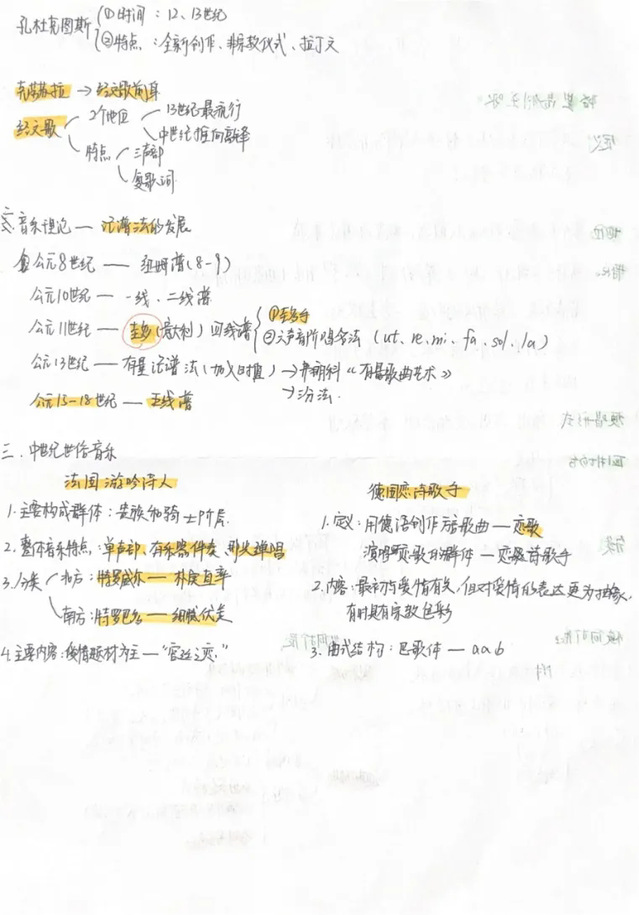 孔杜克图斯 ①时间：12、13世纪
②特点：全新创作、非宗教仪式、拉丁文
克劳苏拉 → 经文歌前身
经文歌 2个地位 13世纪最流行
中世纪推向高峰
特点 三声部
复歌词
二、音乐理论 —— 记谱法的发展
公元8世纪 —— 纽姆谱(8-9)
公元10世纪 — 一线、二线谱
公元11世纪 —— 圭多(意大利) 四线谱 ①圭多手
②六声音阶唱名法 (ut、re、mi、fa、sol、la)
公元13世纪 —— 有量记谱法 (加入时值) → 弗朗科《有量歌曲艺术》
→ 三分法
公元15-18世纪 — 五线谱
三、中世纪世俗音乐
法国游吟诗人
1. 主要构成群体：贵族和骑士阶层
2. 整体音乐特点：单声部、有乐器伴奏、即兴弹唱
3. 分类 北方：特罗威尔 — 朴质直率
南方：特罗巴多 — 细腻优美
4. 主要内容：爱情题材为主 — “宫廷之恋”
德国恋诗歌手
1. 定义：用德语创作方言歌曲 — 恋歌
演唱恋歌的群体 — 恋诗歌手
2. 内容：最初与爱情有关，但对爱情的表达更为抽象，
有时具有宗教色彩
3. 曲式结构：巴歌体 — aab